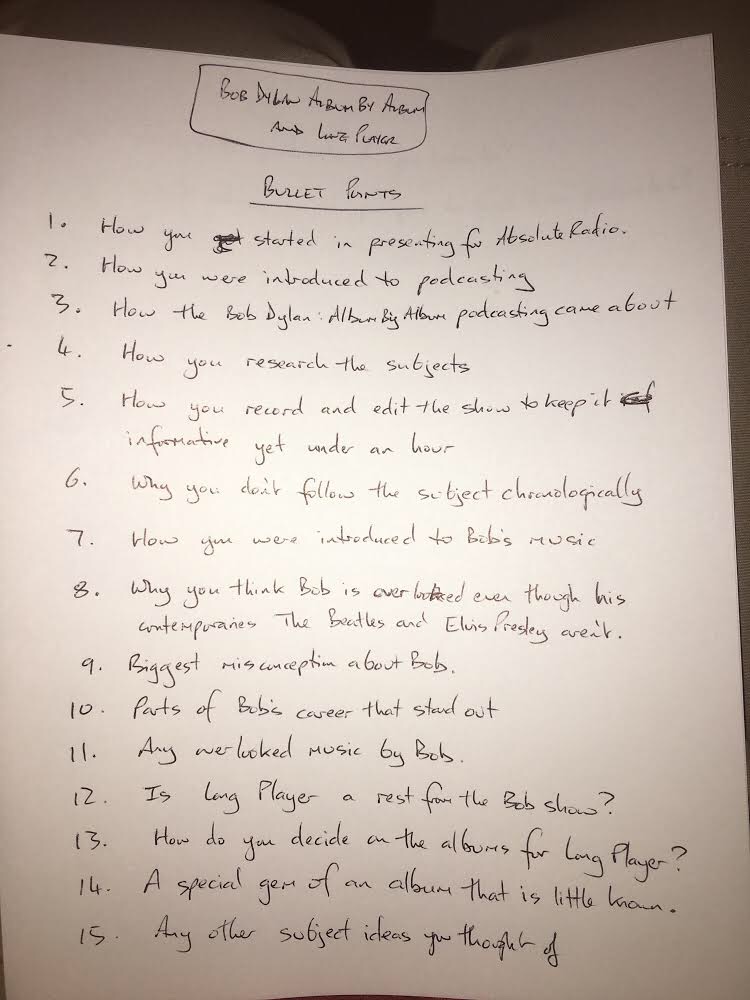 BOB DYLAN ALBUM BY ALBUM
AND LONG PLAYER
BULLET POINTS
1. How you started in presenting for Absolute Radio.
2. How you were introduced to podcasting
3. How the Bob Dylan: Album By Album podcasting came about
4. How you research the subjects
5. How you record and edit the show to keep it
informative yet under an hour
6. Why you don't follow the subject chronologically
7. How you were introduced to Bob's music
8. Why you think Bob is overlooked even though his
contemporaries The Beatles and Elvis Presley aren't.
9. Biggest misconception about Bob.
10. Parts of Bob's career that stand out
11. Any overlooked music by Bob.
12. Is Long Player a rest from the Bob show?
13. How do you decide on the albums for Long Player?
14. A special gem of an album that is little known.
15. Any other subject ideas you thought of